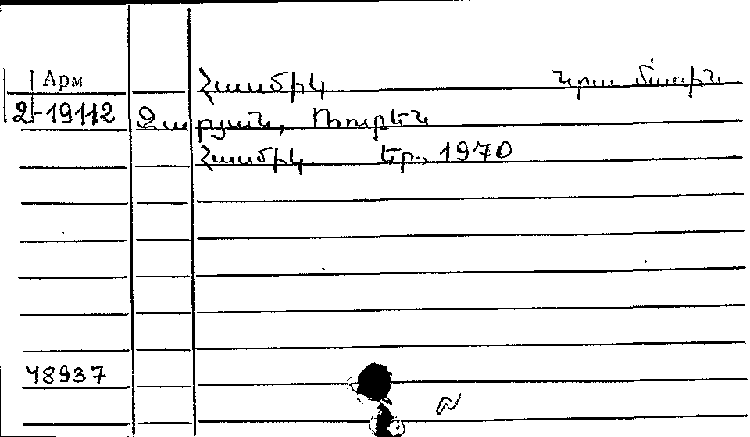 Арм
Համբիկ նրա մասին
2-19112 Զարյան, Ռուբեն
Համբիկ Եր., 1970
48937